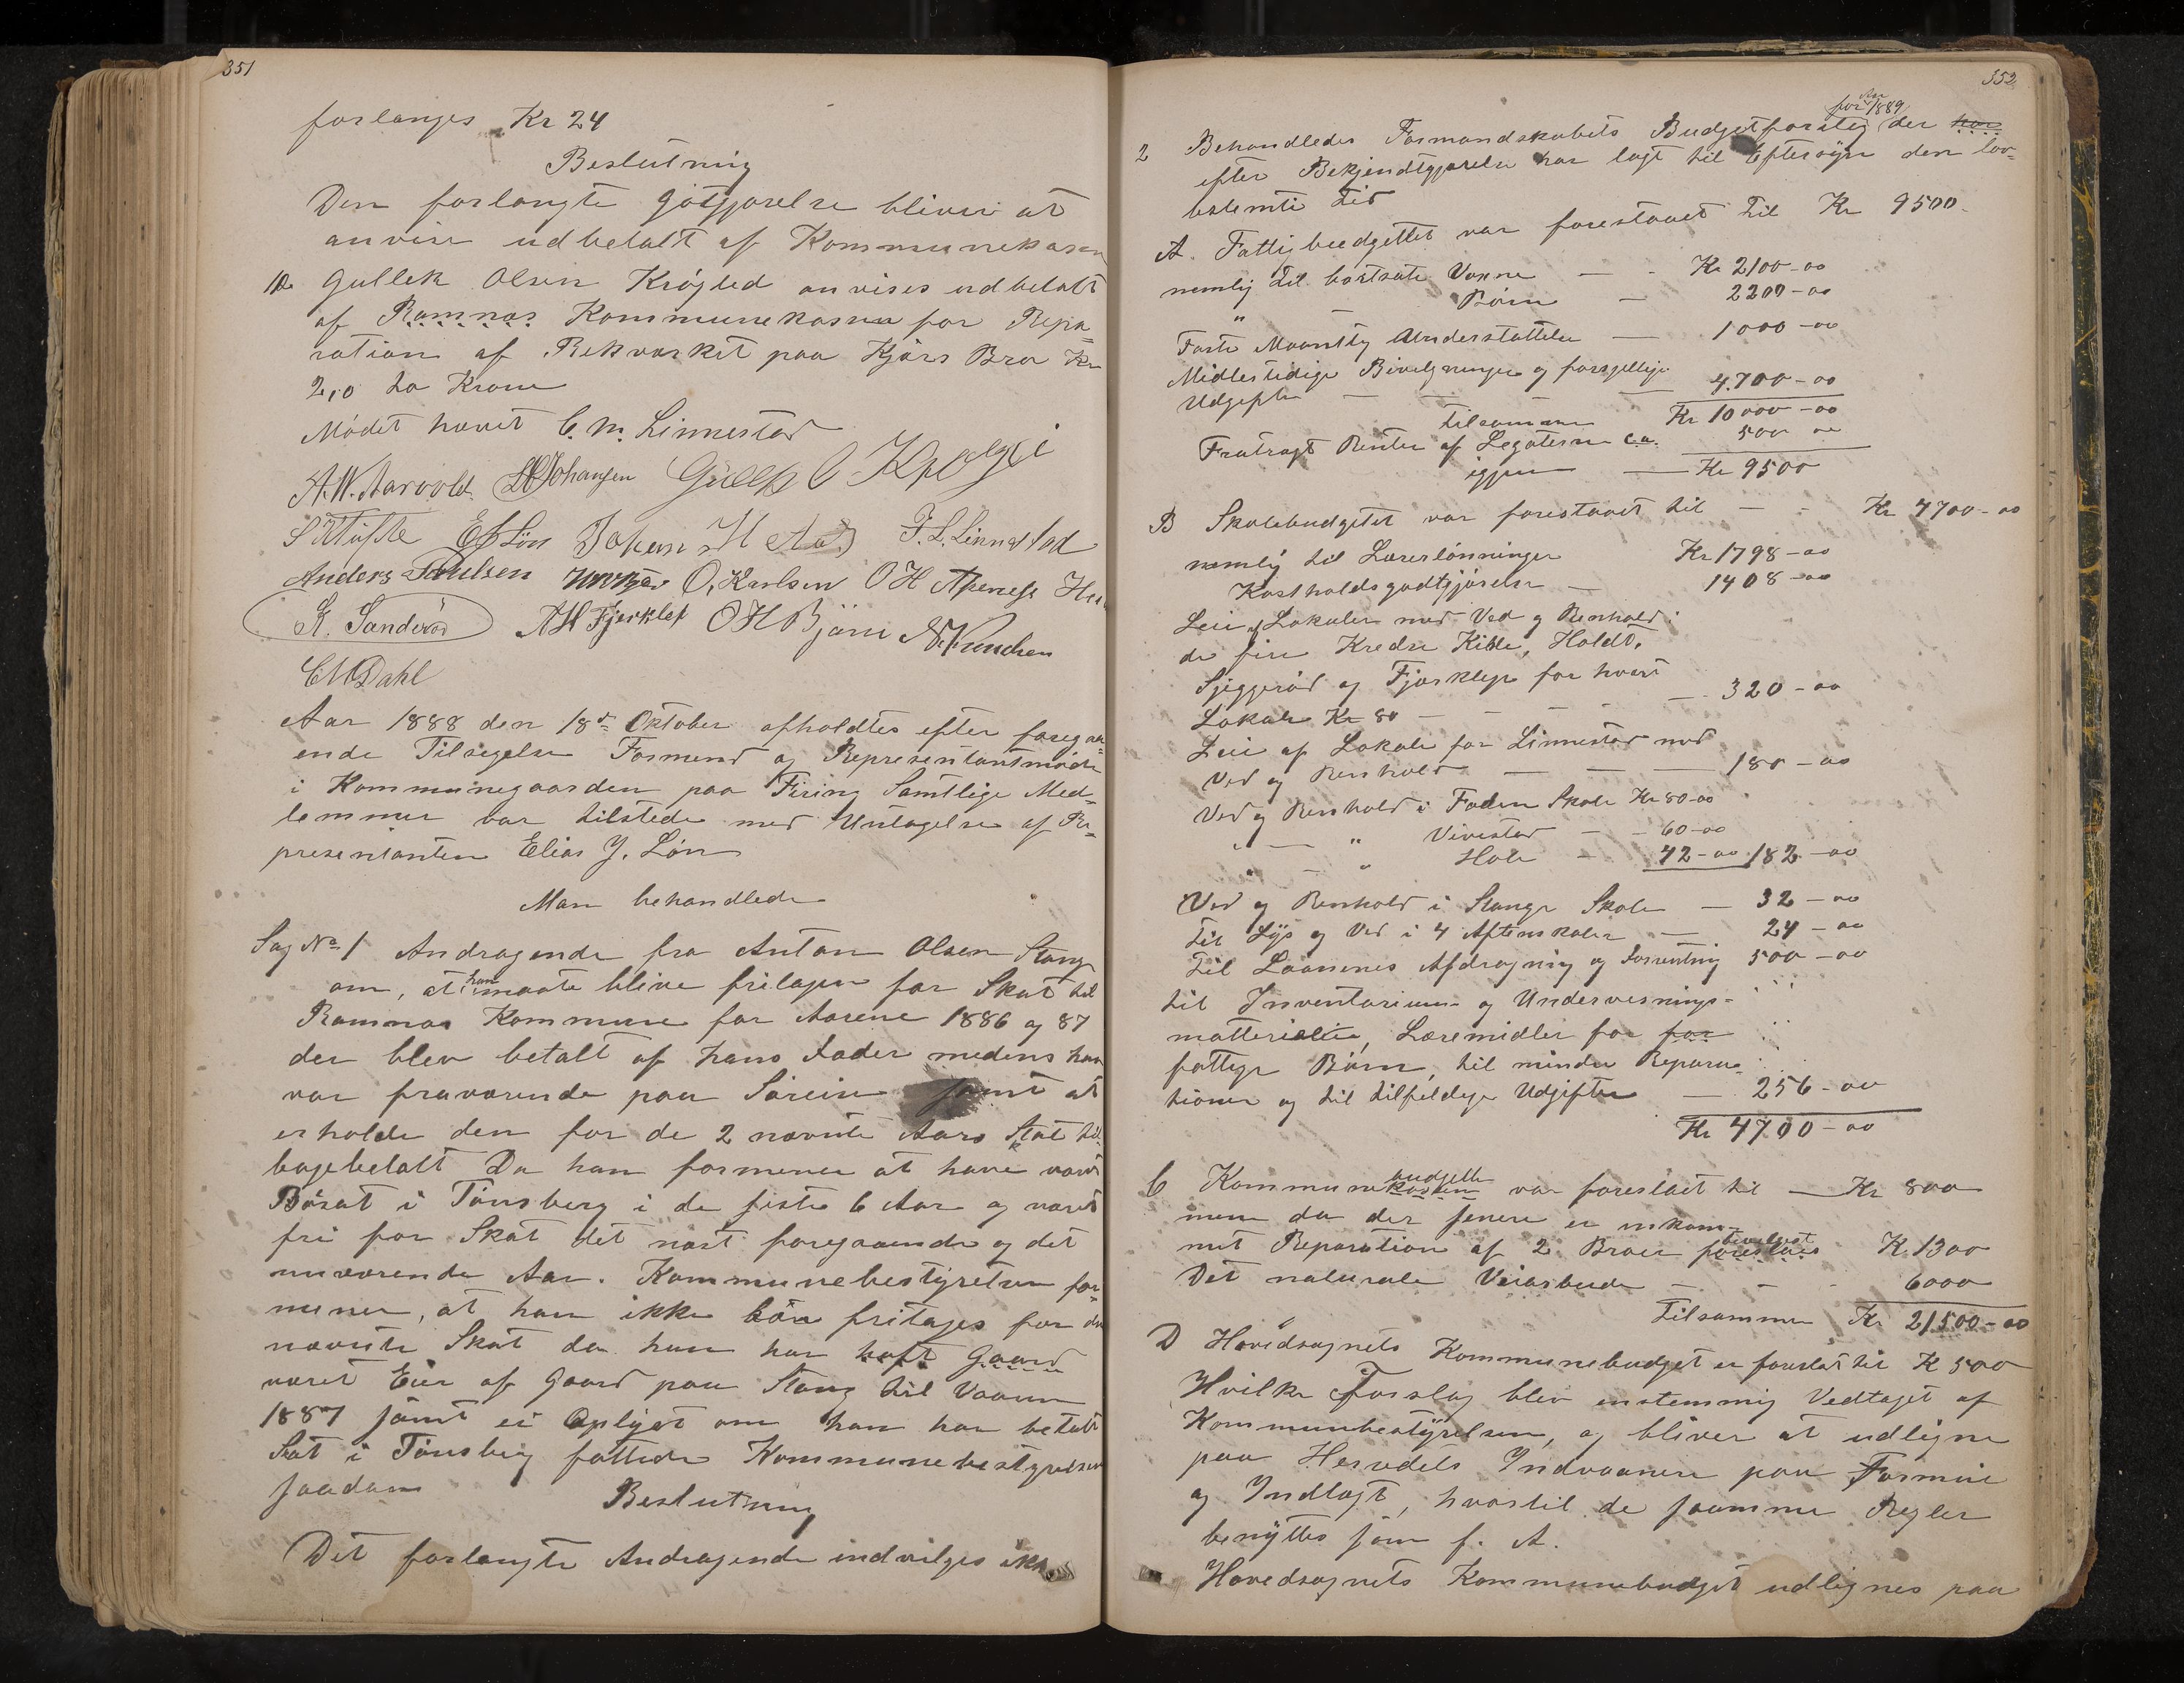 351
forlanges Kr 24
Beslutning
Den forlangte gotgjørelse bliver at
anvise udbetalt af Kommunekasen
10 Gullek Olsen Krøgled anvises udbetalt
af Ramnæs Kommunekasse for Repa-
ration af Rekværket paa Kjærs Bro Kr
2,0 to Krone
Mødet hævet C. M. Linnestad
A. W. Aarvold Johansen Gullek O Krøgli
E J Løn Johan H F. L. Linnestad
Anders Paulsen O. Karlsen O H
K. Sanderød A H Fjærklep O H Bjørn N. Knudsen
C M Dahl
Aar 1888 den 18de Oktober afholdtes efter foregaa-
ende Tilsigelse Formend og Representantmøde
i Kommunegaarden paa Firing Samtlige Med-
lemmer var tilstede med Untagelse af Re-
presentanten Elias J. Løn
Man behandlede
Sag No 1 Andragende fra Anton Olsen Stang
om, at han maate blive fritagen for Skat til
Ramnæs Kommune for Aarene 1886 og 87
der blev betalt af hans Fader medens han
var fraværende paa Søreise samt at
erholde den for de 2 nævnte Aars Skat til-
bagebetalt Da han formener at have vært
Bosat i Tønsberg i de siste 6 Aar og været
fri for Skat det næst foregaaende og det
nuværende Aar. Kommunebestyrelsen for-
mener, at han ikke bør fritages for den
nævnte Skat da han har haft Gaard
været Eier af Gaard paa Stang til Vaaren
1887 samt ei Oplyst om han har betalt
Skat i Tønsberg fattede Kommunebestyrelsen
saadan Beslutning
Det forlangte Andragende indvilges ikke
352
for Aar 1889
2 Behandledes Formandskabets Budgetforslag der har
efter Bekjendtgjørelse har lagt til Eftersyn den lov-
bestemte Tid
A. Fattigbudgettet var forestaaet til Kr 9500.
nemlig til bortsate Voxne — - Kr 2100-00
" Børn — 2200-00
Faste Maanetlig Understøttelse — 1000-00
Midlertidige Bevilgninger og forsgjellige
Udgifter — — — 4.700-00
tilsammen Kr 10000-00
Fratragt Renter af Legaterne ca. 500 00
igjen — Kr 9500
B Skolebudgetet var forestaaet til — - Kr 4700-00
nemlig til Lærerlønninger Kr 1798-00
Kostholdsgodtgjørelse — 1408-00
Leie af Lokaler med Ved og Renhold i
de fire Kredse Kible, Holdt,
Sjeggerød og Fjærklep for hvert
Lokale Kr 80 — - - - — 320-00
Leie af Lokale for Linnestad med
Ved og Renhold — — — 180-00
Ved og Renhold i Foden Skole Kr 80-00
" — " Vivestad — - 60-00
" — " Hole — 42-00 182-00
Ved og Renhold i Stange Skole — 32-00
til Lys og Ved i 4 Aftenskoler — 24-00
til Laanenes Afdragning og Forrentning 500-00
til Inventarium- og Undervisnings-
matterialier, Læremidler for for
fattige Børn, til mindre Repara-
tioner og til tilfeldige Udgifter — 256-00
Kr 4700-00
budgette
C Kommunekassen var foreslaaet til — Kr 800
men da der senere er inkom-
met Reparation af 2 Broer foreslaaes Kr 1300
Det naturale Veiarbeide — - - 6000
Tilsammen Kr 21500-00
D Hovedsognets Kommunebudget er foreslat til K 500
Hvilke Forslag blev enstemmig Vedtaget af
Kommunebestyrelsen, og bliver at udligne
paa Herredets Indvaanere paa Formue
og Indtægt, hvortil de samme Regler
benyttes som f. A.
Hovedsognets Kommunebudget udlignes paa